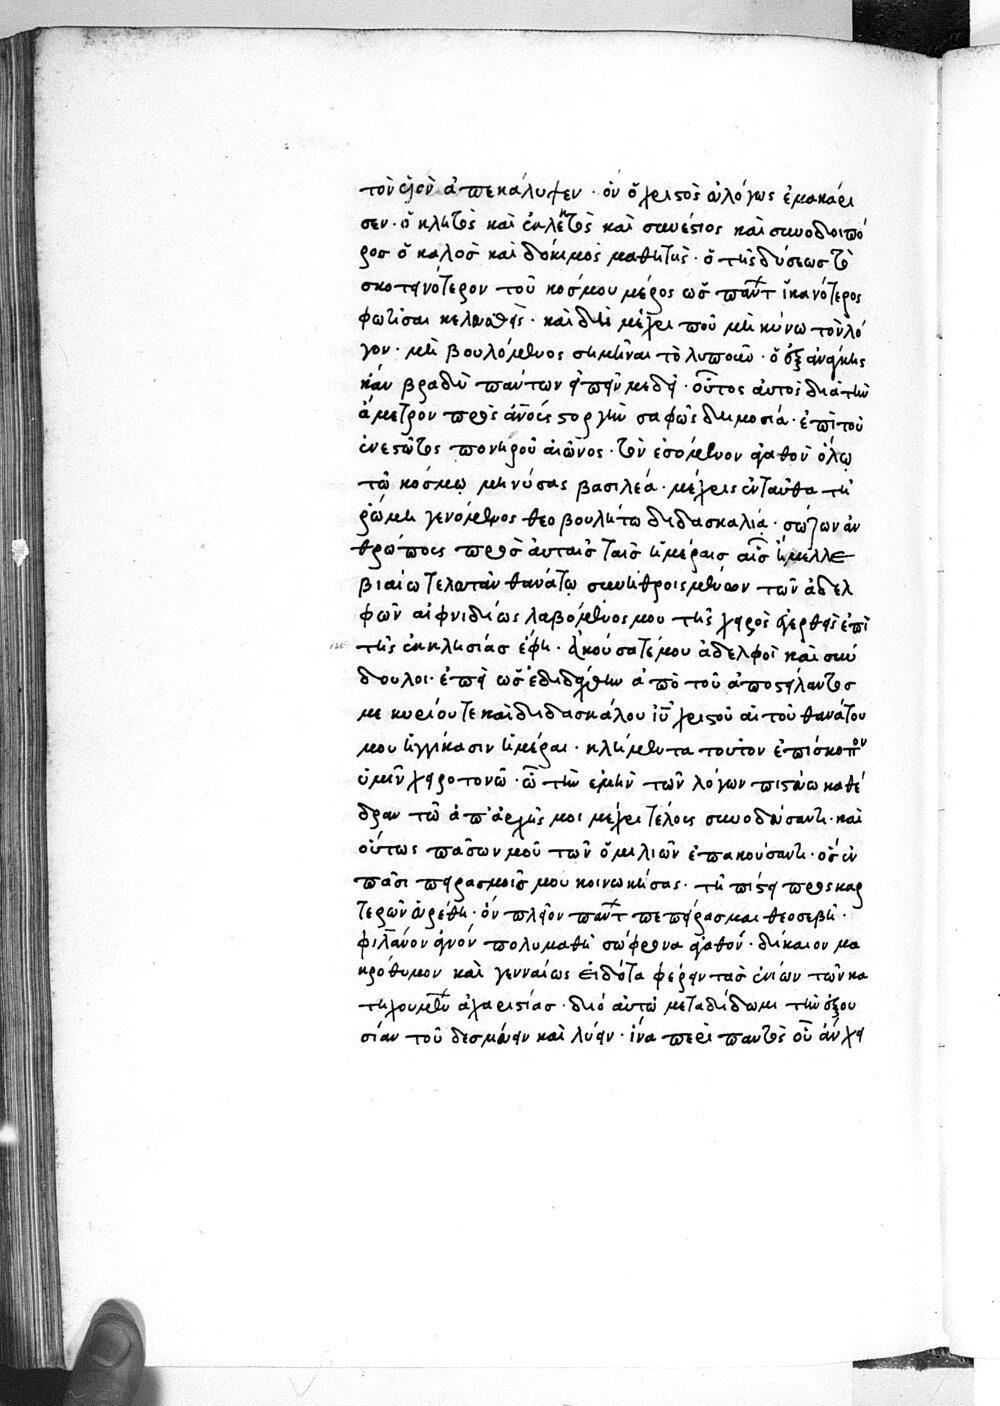 τὸν υἱὸν ἀπεκάλυψεν · ὃν ὁ χριστὸς εὐλόγως ἐμακάρι
σεν · ὁ κλητὸς καὶ ἐκλεκτὸς καὶ συνέστιος καὶ συνοδοιπό
ρος ὁ καλὸς καὶ δόκιμος μαθητὴς · ὁ τῆς δύσεως τὸ
σκοτεινότερον τοῦ κόσμου μέρος ὡς πάντ ἱκανότερος
φωτίσαι κελευσθεὶς · καὶ δὴ μέχρι ποῦ μηκύνω τὸν λό
γον · μὴ βουλόμενος σημῆναι τὸ λυποῦν · ὃ ἐξ ἀνάγκης
κἂν βραδὺ πάντων εἰπεῖν με δεῖ · οὗτος αὐτὸς διὰ τὴν
ἄμετρον πρὸς ἀνους στοργὴν σαφῶς δημοσίᾳ · ἐπὶ τοῦ
ἐνεστῶτος πονηροῦ αἰῶνος · τὸν ἐσόμενον ἀγαθὸν ὅλῳ
τῷ κόσμῳ μηνύσας βασιλέα · μέχρις ἐνταῦθα τῇ
ῥώμῃ γενόμενος θεοβουλήτῳ διδασκαλίᾳ · σώζων ἀν
θρώπους πρὸς αὐταῖς ταῖς ἡμέραις αἷς ἤμελλε
βιαίῳ τελευτᾶν θανάτῳ συνηθροισμένων τῶν ἀδελ
φῶν αἰφνιδίως λαβόμενός μου τῆς χειρὸς ἐγερθεὶς ἐπὶ
τῆς ἐκκλησίας ἔφη · ἀκούσατέ μου ἀδελφοὶ καὶ σύν
δουλοι · ἐπεὶ ὡς ἐδιδάχθην ἀπὸ τοῦ ἀποστείλαντός
με κυρίου τε καὶ διδασκάλου ιυ χριστοῦ αἱ τοῦ θανάτου
μου ἠγγίκασιν ἡμέραι · κλήμεντα τοῦτον ἐπίσκοπον
ὑμῖν χειροτονῶ · ᾧ τὴν ἐμὴν τῶν λόγων πιστεύω καθέ
δραν τῷ ἀπ' ἀρχῆς μοι μέχρι τέλους συνοδεύσαντι · καὶ
οὕτως πασῶν μου τῶν ὁμιλιῶν ἐπακούσαντι · ὃς ἐν
πᾶσι πειρασμοῖς μου κοινωνήσας · τῇ πίστει προσκαρ
τερῶν εὑρέθη · ὃν πλεῖον πάντ πεπείρασμαι θεοσεβῆ ·
φιλάνον ἁγνὸν πολυμαθῆ σώφρονα ἀγαθόν · δίκαιον μα
κρόθυμον καὶ γενναίως εἰδότα φέρειν τὰς ἐνίων τῶν κα
τηχουμέν ἀχαριστίας · διὸ αὐτῷ μεταδίδωμι τὴν ἐξου
σίαν τοῦ δεσμεύειν καὶ λύειν · ἵνα περὶ παντὸς οὗ ἂν χει